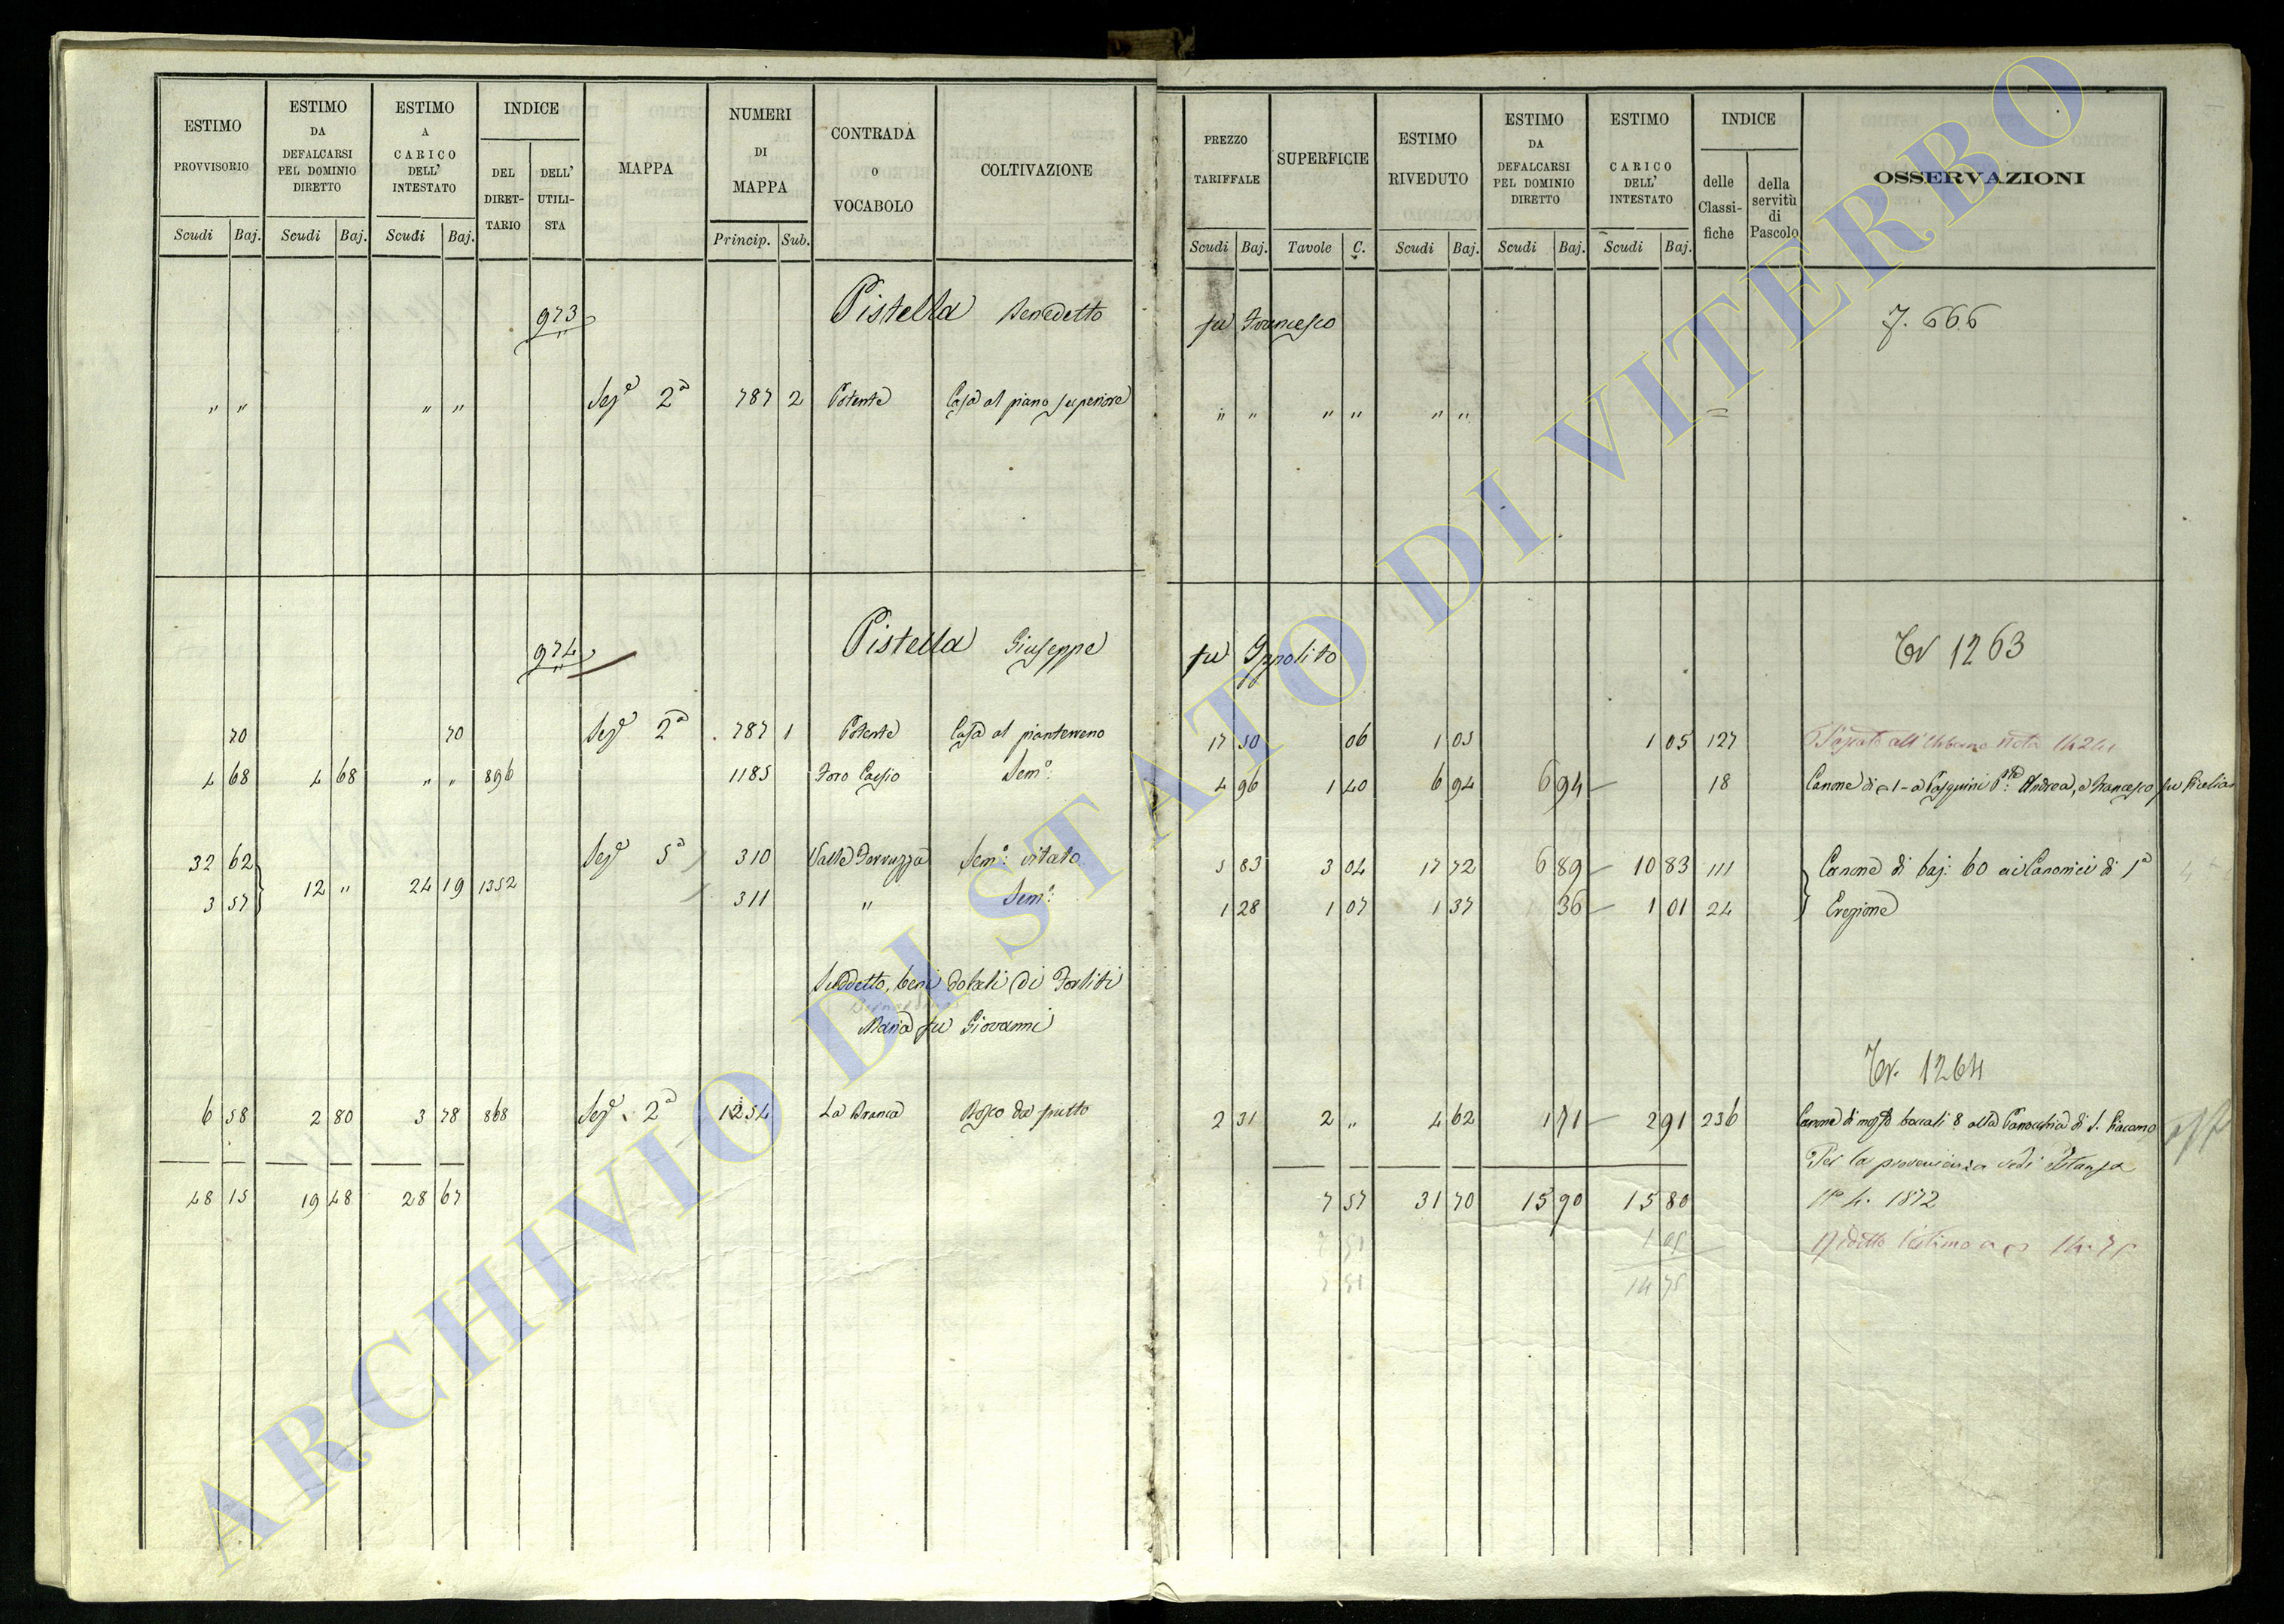 ESTIMO PROVVISORIO Scudi Baj.
ESTIMO DA DEFALCARSI PEL DOMINIO DIRETTO Scudi Baj.
ESTIMO A CARICO DELL' INTESTATO Scudi Baj.
INDICE DEL DIRET-TARIO DELL' UTILI-STA
MAPPA
NUMERI DI MAPPA Princip. Sub.
CONTRADA O VOCABOLO
COLTIVAZIONE
PREZZO TARIFFALE Scudi Baj.
SUPERFICIE Tavole C.
ESTIMO RIVEDUTO Scudi Baj.
ESTIMO DA DEFALCARSI PEL DOMINIO DIRETTO Scudi Baj.
ESTIMO CARICO DELL' INTESTATO Scudi Baj.
INDICE delle Classi-fiche della servitù di Pascolo
OSSERVAZIONI
973 Pistella Benedetto fu Francesco 666
" " " " Sezè 2a 787 2 Potente Casa al piano superiore " " " " " " =
974 Pistella Giuseppe fu Ippolito 1263
70 70 Sezè 2a 787 1 Potente Casa al pianterreno 17 50 06 1 05 1 05 127
4 68 4 68 " " 896 1185 Foro Cassio Semo: 4 96 1 40 6 94 6 94 18 Canone di 1 a Pasquini Andrea, e Francesco fu
32 62 Sezè 5a 310 Valle Ferruzza Semo: vitato 5 83 3 04 17 72 6 89 10 83 111 Canone di baj: 60 ai Canonici di 1a
3 57 12 " 24 19 1352 311 " Semo: 1 28 1 07 1 37 36 1 01 24 Erezione
Suddetto, beni dotali di Forliti
Maria fu Giovanni
1264
6 58 2 80 3 78 868 Sezè 2a 1254 La Branca Bosco da frutto 2 31 2 " 4 62 1 71 2 91 236 Canone di mosto boccali 8 alla Parrocchia di S. Giacomo
Per la provenienza vedi Istanza
48 15 19 48 28 67 7 57 31 70 15 90 15 80 N° 4. 1872
1 05
14 75
ARCHIVIO DI STATO DI VITERBO